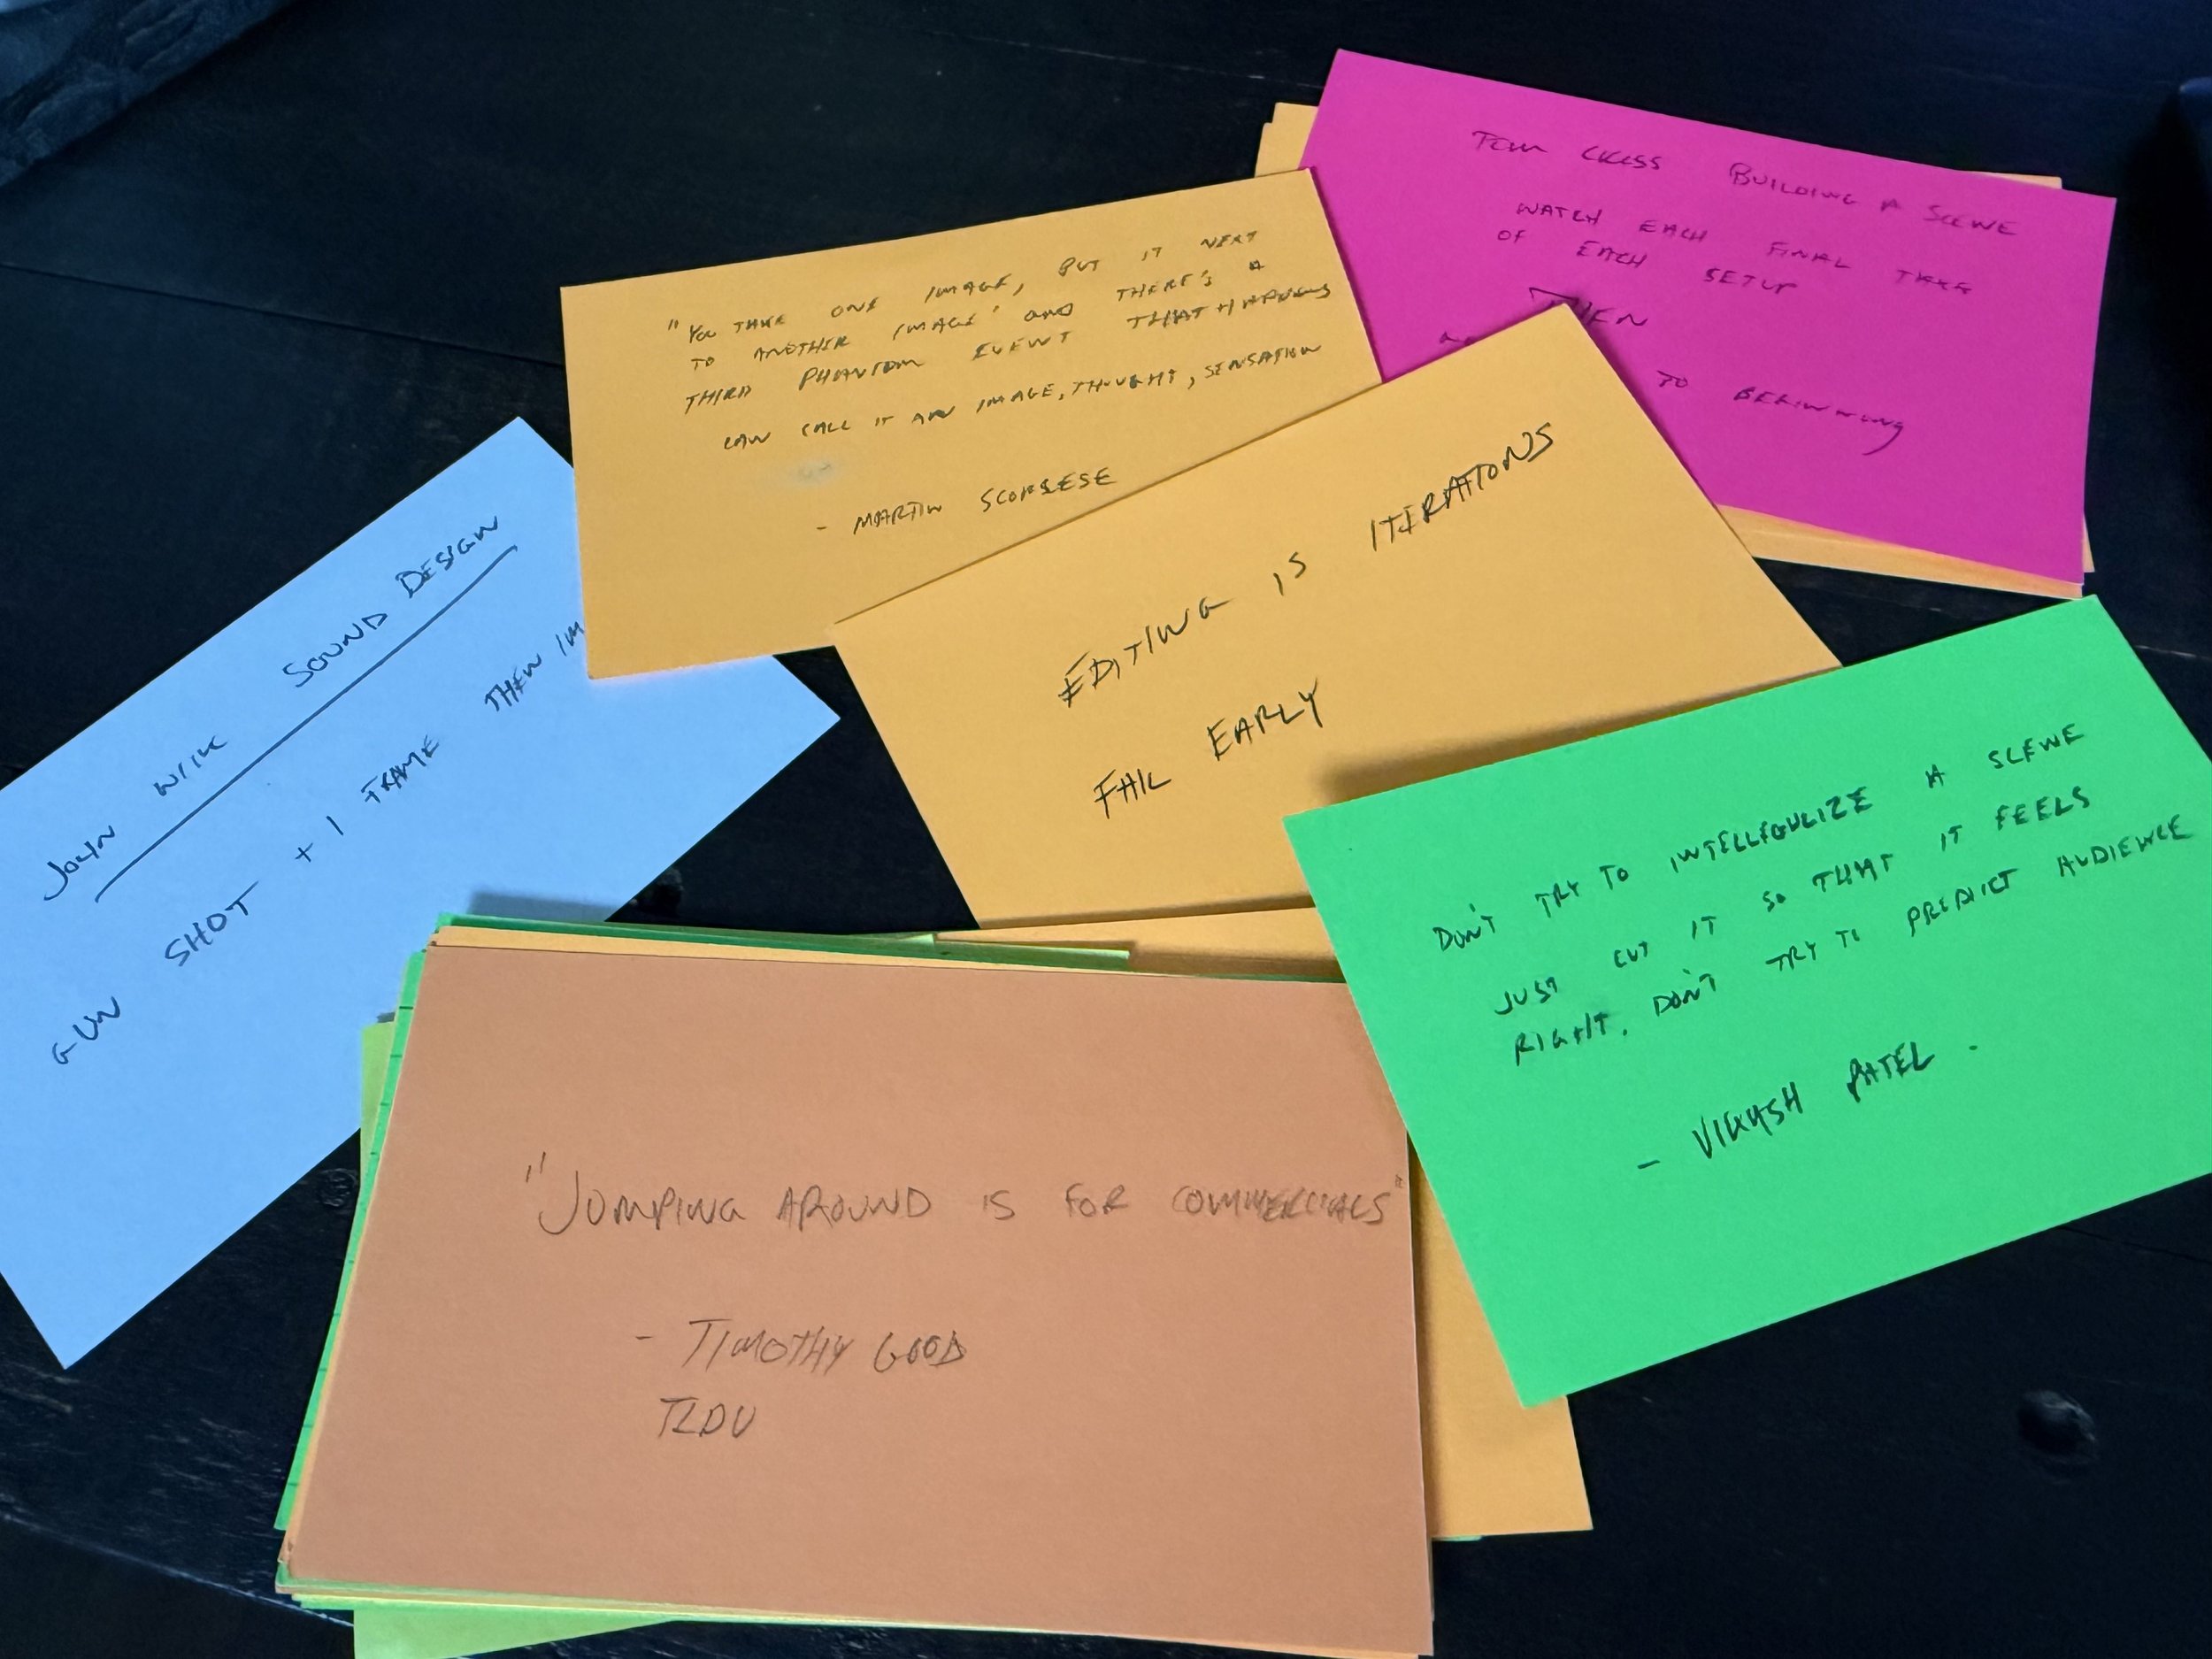 TOM CROSS BUILDING A SCENE
WATCH EACH FINAL TAKE
OF EACH SETUP
THEN
TO BEGINNING
"YOU TAKE ONE IMAGE, PUT IT NEXT
TO ANOTHER IMAGE' and THERE'S A
THIRD PHANTOM EVENT THAT HAPPENS
CAN CALL IT AN IMAGE, THOUGHT, SENSATION
- MARTIN SCORSESE
EDITING IS ITERATIONS
FAIL EARLY
JOHN WICK SOUND DESIGN
GUN SHOT + 1 FRAME THEN IM
DON'T TRY TO A SCENE
JUST CUT IT SO THAT IT FEELS
RIGHT. DON'T TRY TO PREDICT AUDIENCE
- VIKASH PATEL.
"JUMPING AROUND IS FOR COMMERCIALS"
- TIMOTHY GOOD